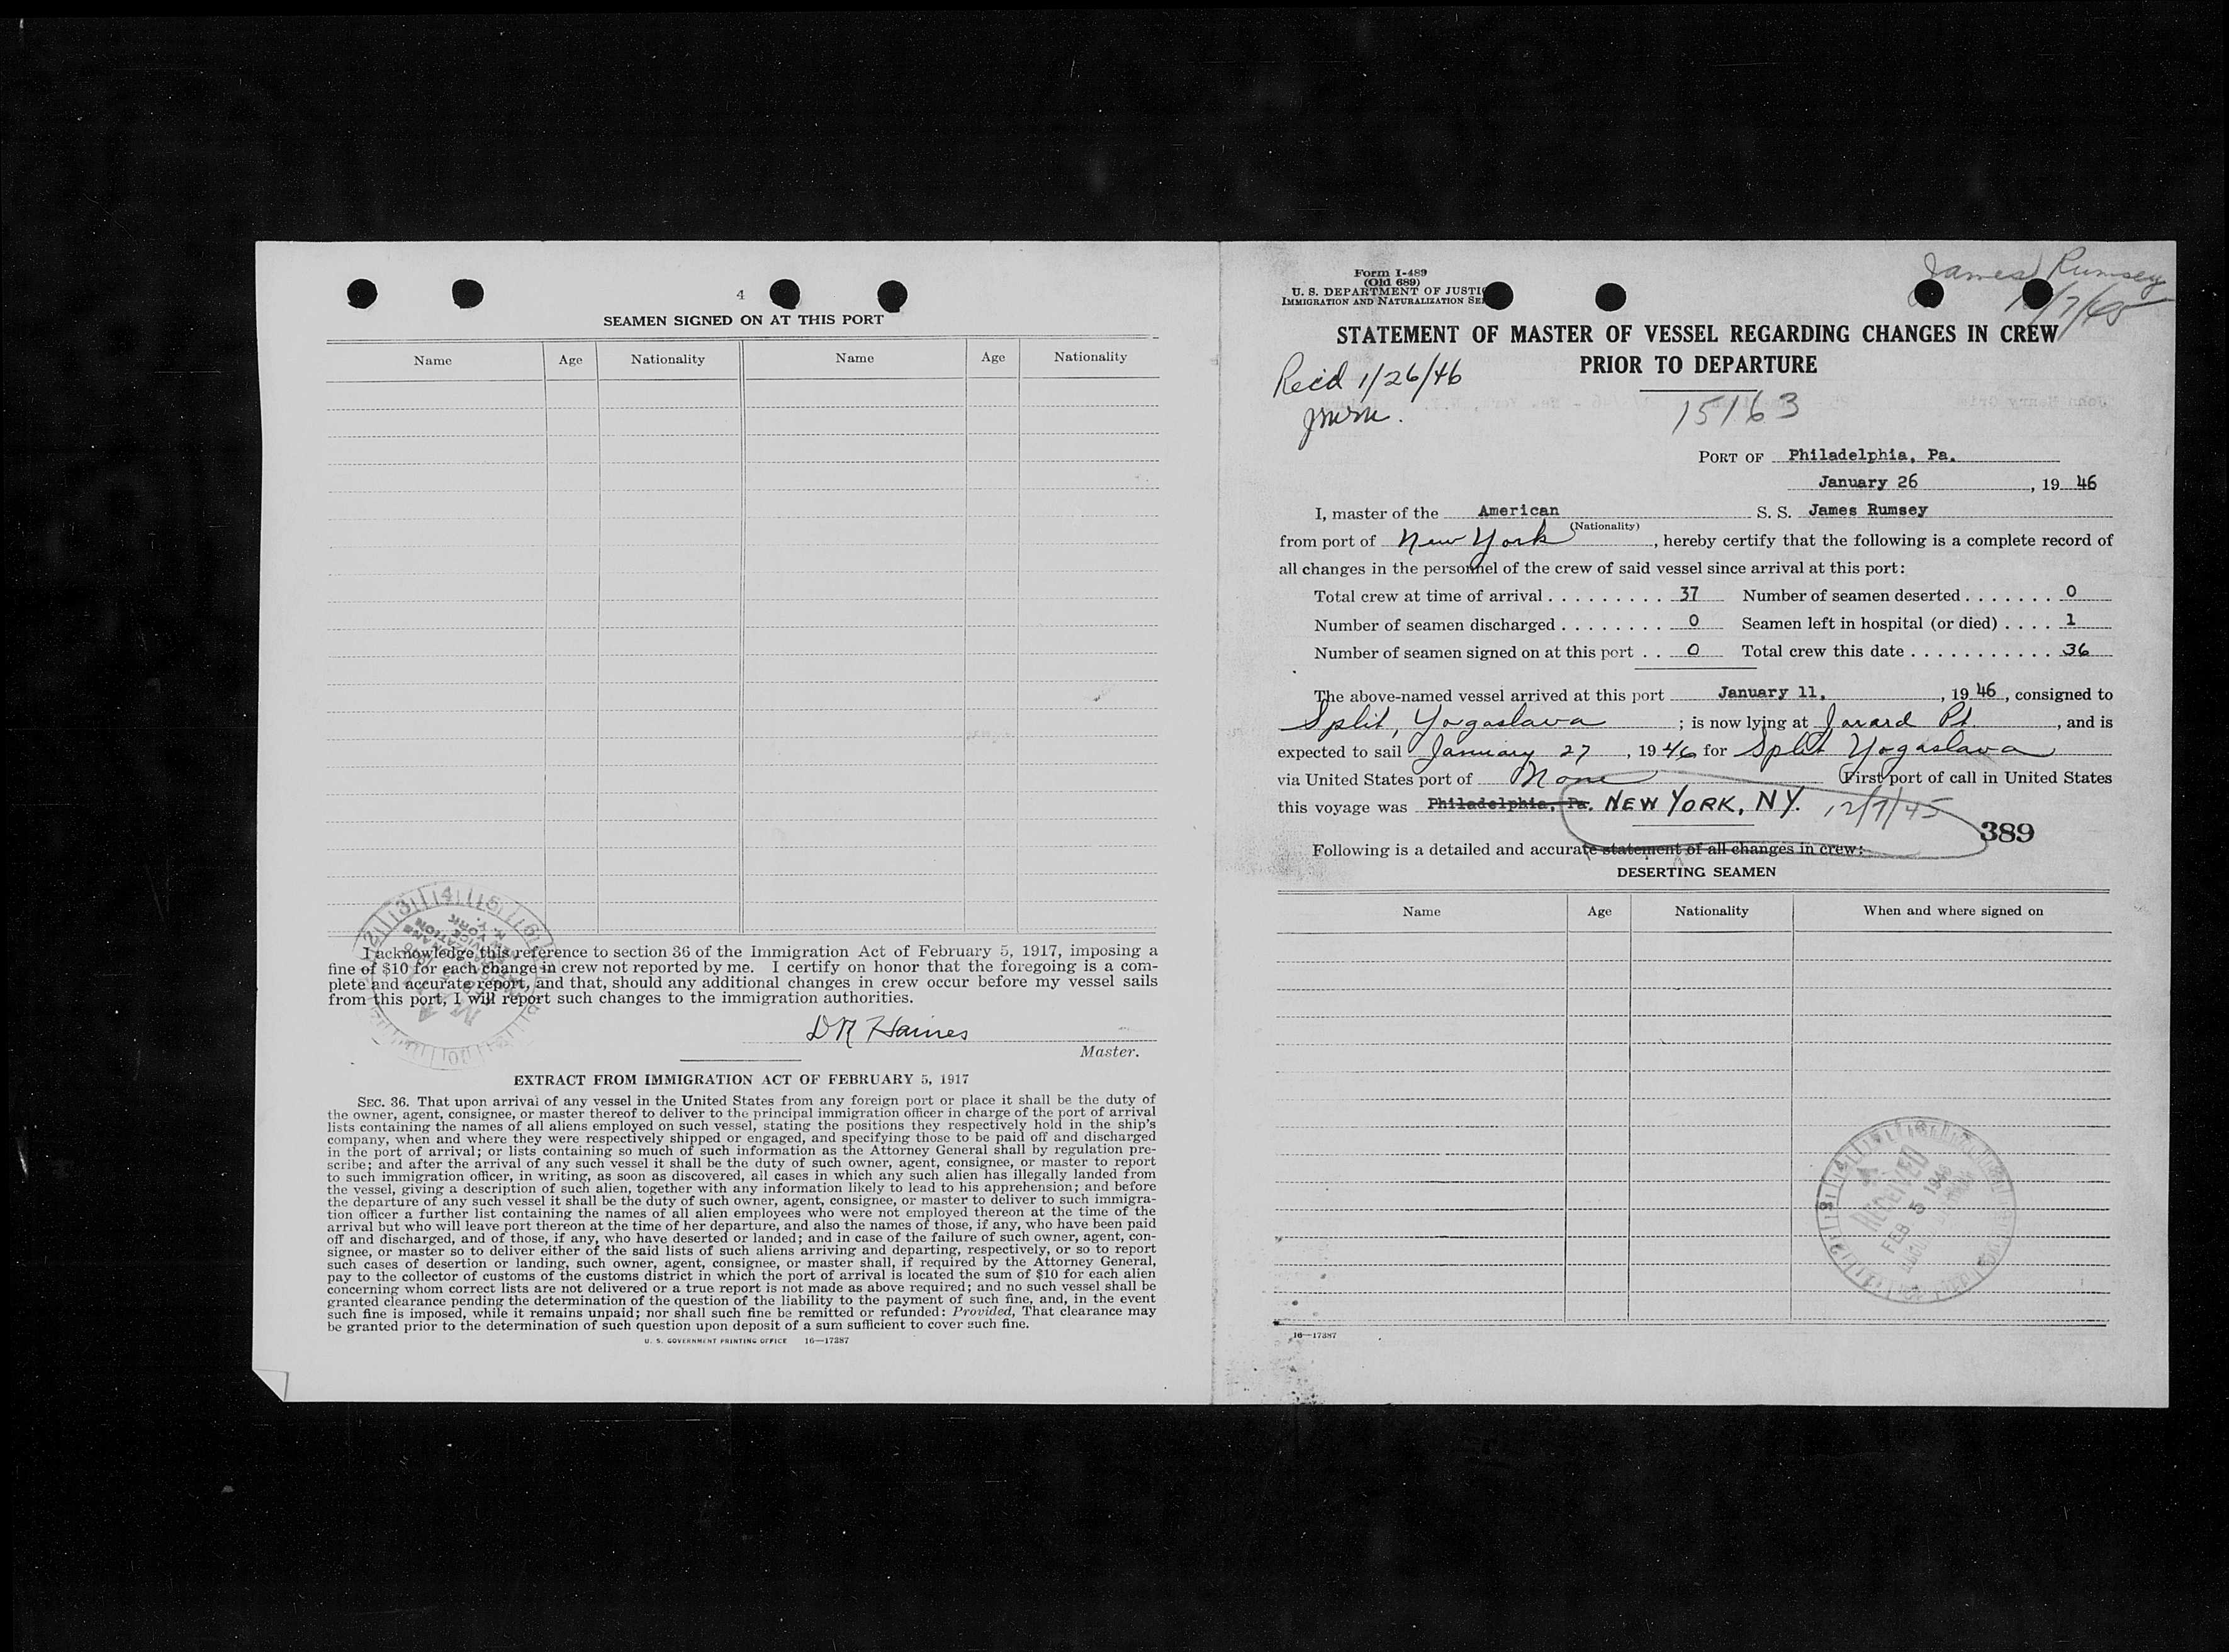 4
SEAMEN SIGNED ON AT THIS PORT
Name Age Nationality Name Age Nationality
I acknowledge this reference to section 36 of the Immigration Act of February 5, 1917, imposing a
fine of $10 for each change in crew not reported by me. I certify on honor that the foregoing is a com-
plete and accurate report, and that, should any additional changes in crew occur before my vessel sails
from this port, I will report such changes to the immigration authorities.
D R Haines
Master.
EXTRACT FROM IMMIGRATION ACT OF FEBRUARY 5, 1917
SEC. 36. That upon arrival of any vessel in the United States from any foreign port or place it shall be the duty of
the owner, agent, consignee, or master thereof to deliver to the principal immigration officer in charge of the port of arrival
lists containing the names of all aliens employed on such vessel, stating the positions they respectively hold in the ship's
company, when and where they were respectively shipped or engaged, and specifying those to be paid off and discharged
in the port of arrival; or lists containing so much of such information as the Attorney General shall by regulation pre-
scribe; and after the arrival of any such vessel it shall be the duty of such owner, agent, consignee, or master to report
to such immigration officer, in writing, as soon as discovered, all cases in which any such alien has illegally landed from
the vessel, giving a description of such alien, together with any information likely to lead to his apprehension; and before
the departure of any such vessel it shall be the duty of such owner, agent, consignee, or master to deliver to such immigra-
tion officer a further list containing the names of all alien employees who were not employed thereon at the time of the
arrival but who will leave port thereon at the time of her departure, and also the names of those, if any, who have been paid
off and discharged, and of those, if any, who have deserted or landed; and in case of the failure of such owner, agent, con-
signee, or master so to deliver either of the said lists of such aliens arriving and departing, respectively, or so to report
such cases of desertion or landing, such owner, agent, consignee, or master shall, if required by the Attorney General,
pay to the collector of customs of the customs district in which the port of arrival is located the sum of $10 for each alien
concerning whom correct lists are not delivered or a true report is not made as above required; and no such vessel shall be
granted clearance pending the determination of the question of the liability to the payment of such fine, and, in the event
such fine is imposed, while it remains unpaid; nor shall such fine be remitted or refunded: Provided, That clearance may
be granted prior to the determination of such question upon deposit of a sum sufficient to cover such fine.
U. S. GOVERNMENT PRINTING OFFICE 16—17387
Form I-489
(Old 689)
U. S. DEPARTMENT OF JUSTIC
IMMIGRATION AND NATURALIZATION SE
James Rumsey
STATEMENT OF MASTER OF VESSEL REGARDING CHANGES IN CREW
PRIOR TO DEPARTURE
Recd 1/26/46
15163
PORT OF Philadelphia, Pa.
January 26, 19 46
I, master of the American S. S. James Rumsey
(Nationality)
from port of New York, hereby certify that the following is a complete record of
all changes in the personnel of the crew of said vessel since arrival at this port:
Total crew at time of arrival . . . . . . . . . . 37 Number of seamen deserted . . . . . . . 0
Number of seamen discharged . . . . . . . . 0 Seamen left in hospital (or died) . . . . 1
Number of seamen signed on at this port . . 0 Total crew this date . . . . . . . . . . . 36
The above-named vessel arrived at this port January 11, , 19 46, consigned to
Split, Yogaslava ; is now lying at Jarard Pt. , and is
expected to sail January 27, 19 46 for Split Yogaslava
via United States port of None First port of call in United States
this voyage was Philadelphia, Pa. NEW YORK, NY. 12/7/45
389
Following is a detailed and accurate statement of all changes in crew:
DESERTING SEAMEN
Name Age Nationality When and where signed on
RECEIVED
FEB 5 1946
16—17387